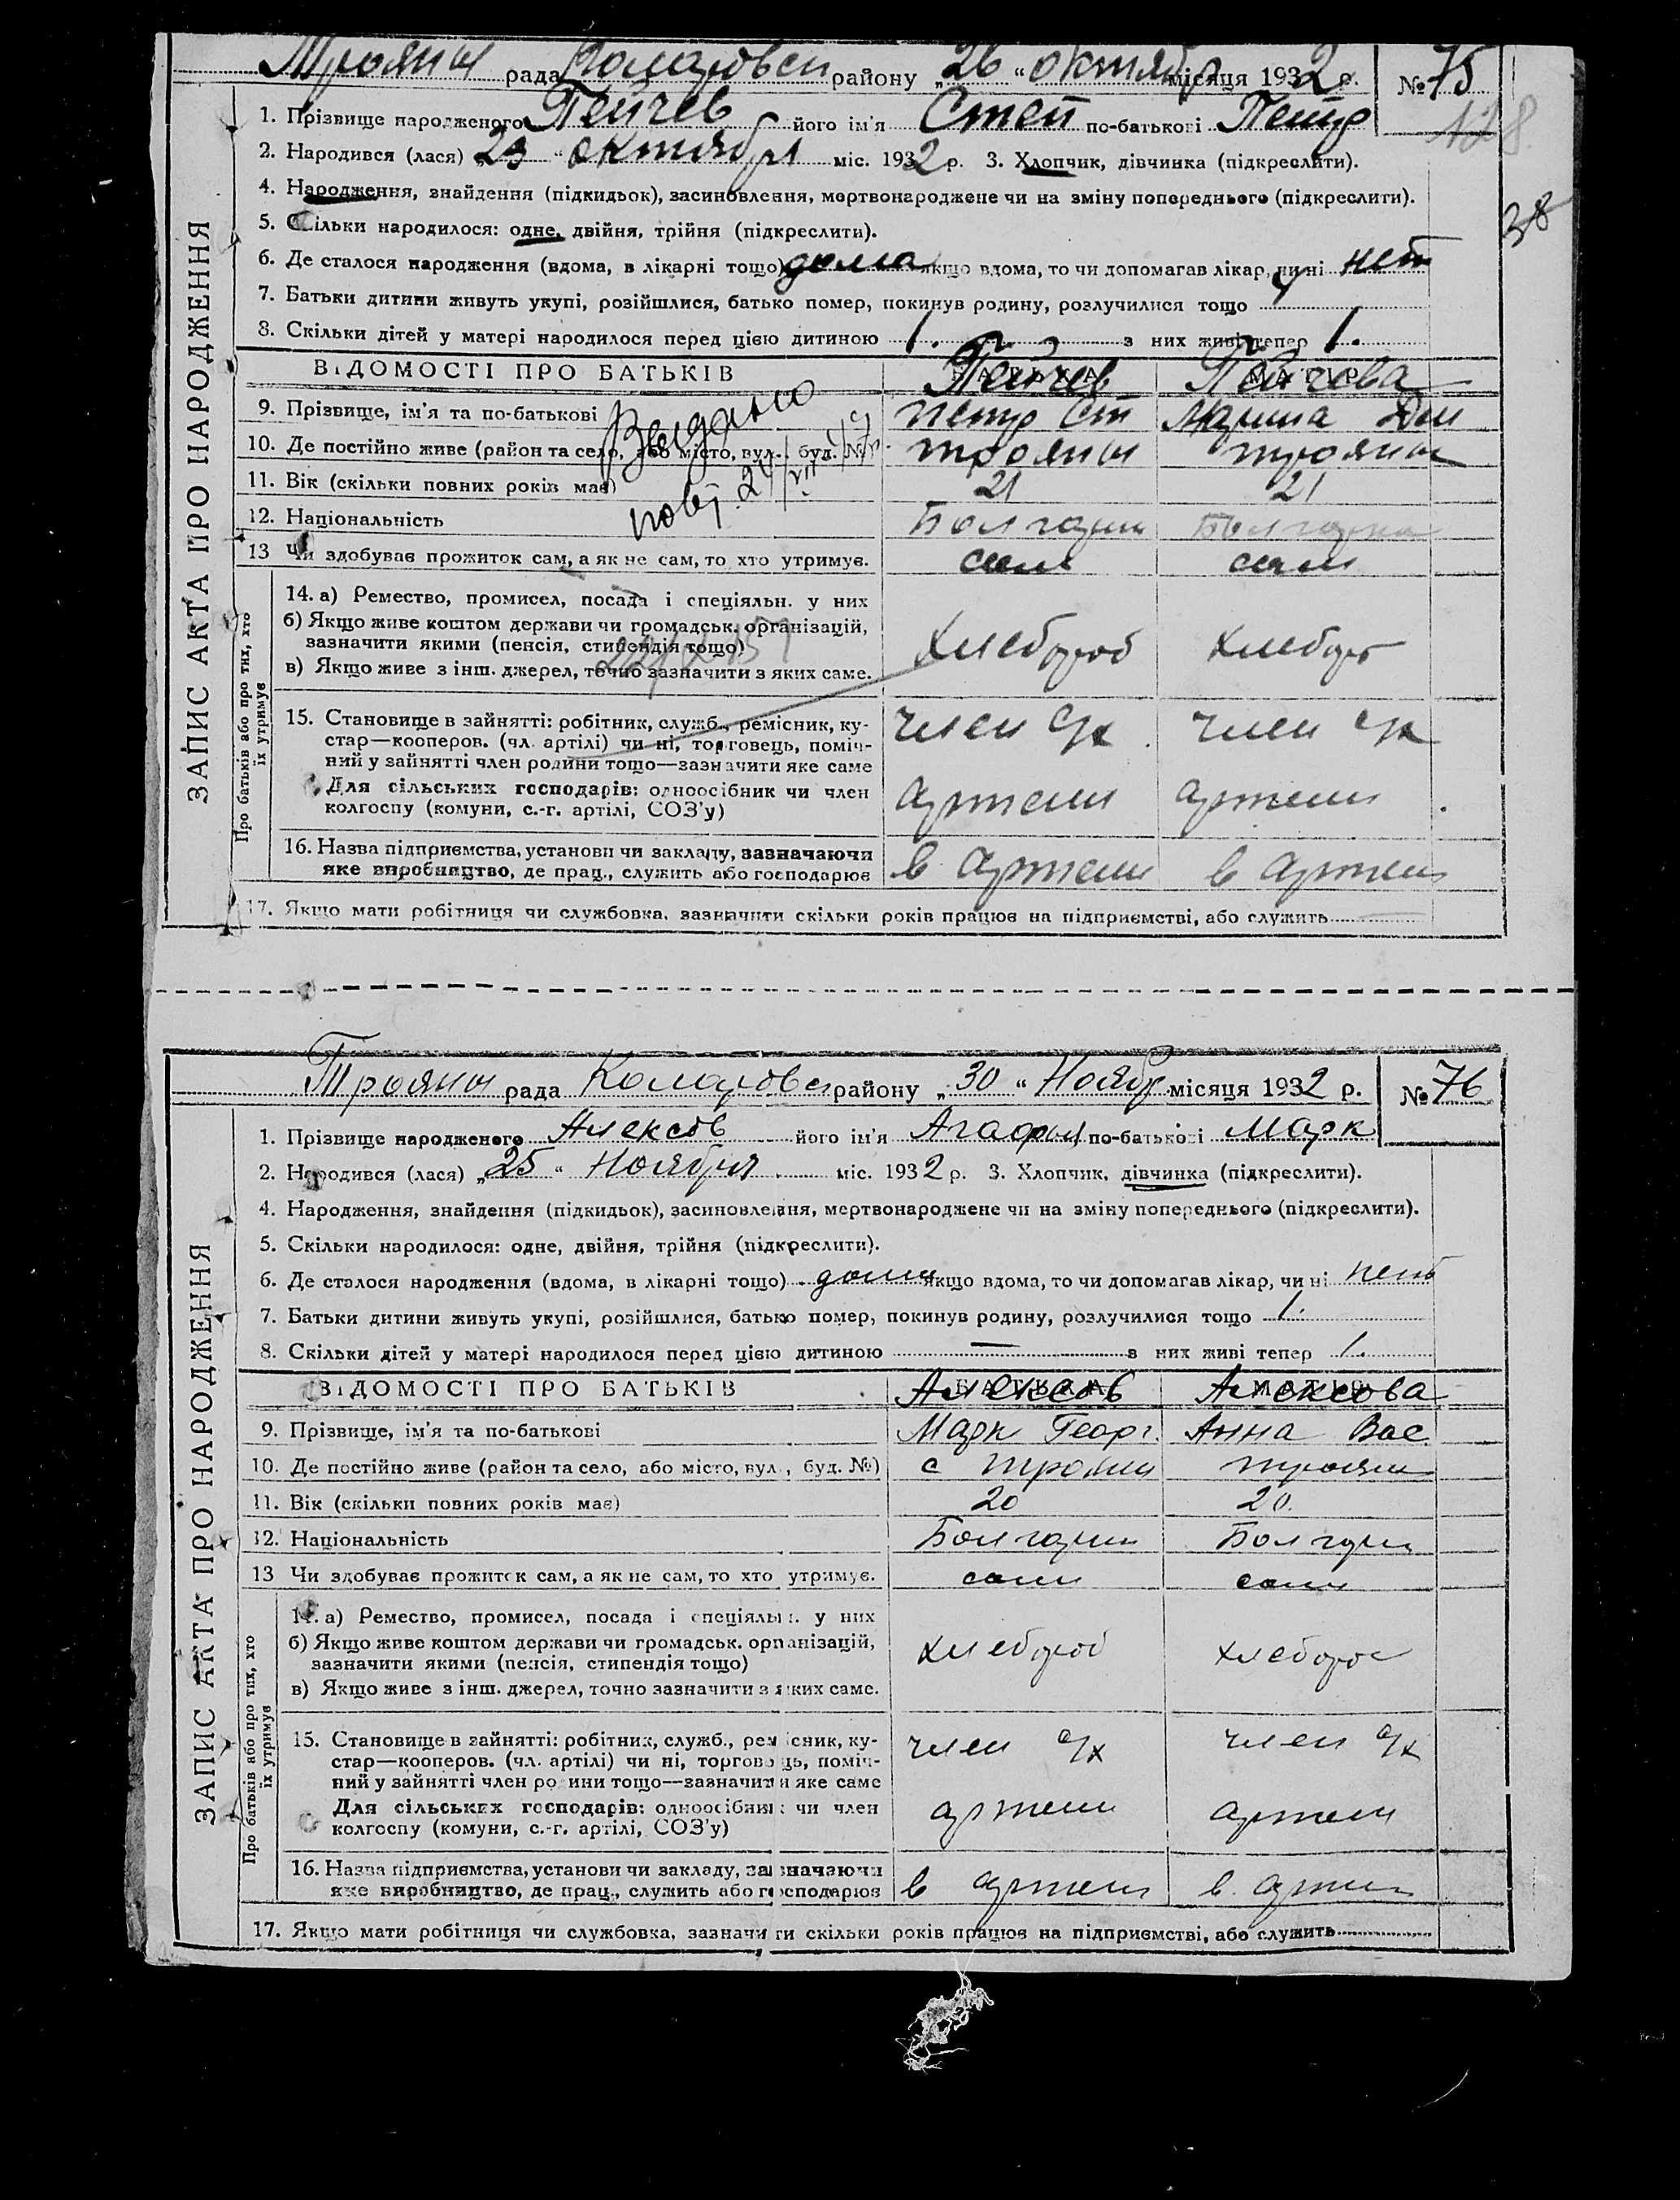 Трояны рада Коларовск району „26“ октябр місяця 1932 р. № 75
128
1. Прізвище народженого Пейчев його ім'я Степ по-батькові Петр
2. Народився (лася) „23“ октября міс. 1932 р. 3. Хлопчик, дівчинка (підкреслити).
4. Народження, знайдення (підкидьок), засиновлення, мертвонароджене чи на зміну попереднього (підкреслити).
38
5. Скільки народилося: одне, двійня, трійня (підкреслити).
6. Де сталося народження (вдома, в лікарні тощо) дома якщо вдома, то чи допомагав лікар, чи ні нет
7. Батьки дитини живуть укупі, розійшлися, батько помер, покинув родину, розлучилися тощо
8. Скільки дітей у матері народилося перед цією дитиною 1. з них живі тепер 1.
ВІДОМОСТІ ПРО БАТЬКІВ БАТЬКА Пейчев МАТІР Пейчева
9. Прізвище, ім'я та по-батькові Петр Ст Марина
Выдано
10. Де постійно живе (район та село, або місто, вул., буд. №) трояны трояны
11. Вік (скільки повних років має) 21 21
12. Національність Болгарин Болгарка
13 Чи здобував прожиток сам, а як не сам, то хто утримує. сам сам
14. а) Ремество, промисел, посада і спеціяльн. у них
б) Якщо живе коштом держави чи громадськ. організацій,
зазначити якими (пенсія, стипендія тощо) хлебороб хлебороб
в) Якщо живе з інш. джерел, точно зазначити з яких саме.
15. Становище в зайнятті: робітник, служб., ремісник, ку-
стар—кооперов. (чл. артілі) чи ні, торговець, поміч- член с/х член с/х
ний у зайнятті член родини тощо—зазначити яке саме
Для сільських господарів: одноосібник чи член артели артели
колгоспу (комуни, с.-г. артілі, СОЗ'у)
16. Назва підприємства, установи чи закладу, зазначаючи
яке виробництво, де прац., служить або господарює в артели в артели
17. Якщо мати робітниця чи службовка, зазначити скільки років працює на підприємстві, або служить
ЗАПИС АКТА ПРО НАРОДЖЕННЯ
Про батьків або про тих, хто
їх утримує
Трояны рада Коларовск району „30“ Ноябр місяця 1932 р. № 76
1. Прізвище народженого Алексов його ім'я Агафия по-батькові Марк
2. Народився (лася) „25“ Ноября міс. 1932 р. 3. Хлопчик, дівчинка (підкреслити).
4. Народження, знайдення (підкидьок), засиновлення, мертвонароджене чи на зміну попереднього (підкреслити).
5. Скільки народилося: одне, двійня, трійня (підкреслити).
6. Де сталося народження (вдома, в лікарні тощо) дома якщо вдома, то чи допомагав лікар, чи ні нет
7. Батьки дитини живуть укупі, розійшлися, батько помер, покинув родину, розлучилися тощо 1.
8. Скільки дітей у матері народилося перед цією дитиною — з них живі тепер 1.
ВІДОМОСТІ ПРО БАТЬКІВ БАТЬКА Алексов МАТІР Алексова
9. Прізвище, ім'я та по-батькові Марк Георг. Анна Вас.
10. Де постійно живе (район та село, або місто, вул., буд. №) с трояны трояны
11. Вік (скільки повних років має) 20 20.
12. Національність Болгарин Болгарк
13 Чи здобував прожиток сам, а як не сам, то хто утримує. сами сами
14. а) Ремество, промисел, посада і спеціяльн. у них
б) Якщо живе коштом держави чи громадськ. організацій, хлебороб хлебороб
зазначити якими (пенсія, стипендія тощо)
в) Якщо живе з інш. джерел, точно зазначити з яких саме.
15. Становище в зайнятті: робітник, служб., ремісник, ку- член с/х член с/х
стар—кооперов. (чл. артілі) чи ні, торговець, поміч-
ний у зайнятті член родини тощо—зазначити яке саме
Для сільських господарів: одноосібник чи член артели артели
колгоспу (комуни, с.-г. артілі, СОЗ'у)
16. Назва підприємства, установи чи закладу, зазначаючи
яке виробництво, де прац., служить або господарює в артели в артели
17. Якщо мати робітниця чи службовка, зазначити скільки років працює на підприємстві, або служить
ЗАПИС АКТА ПРО НАРОДЖЕННЯ
Про батьків або про тих, хто
їх утримує